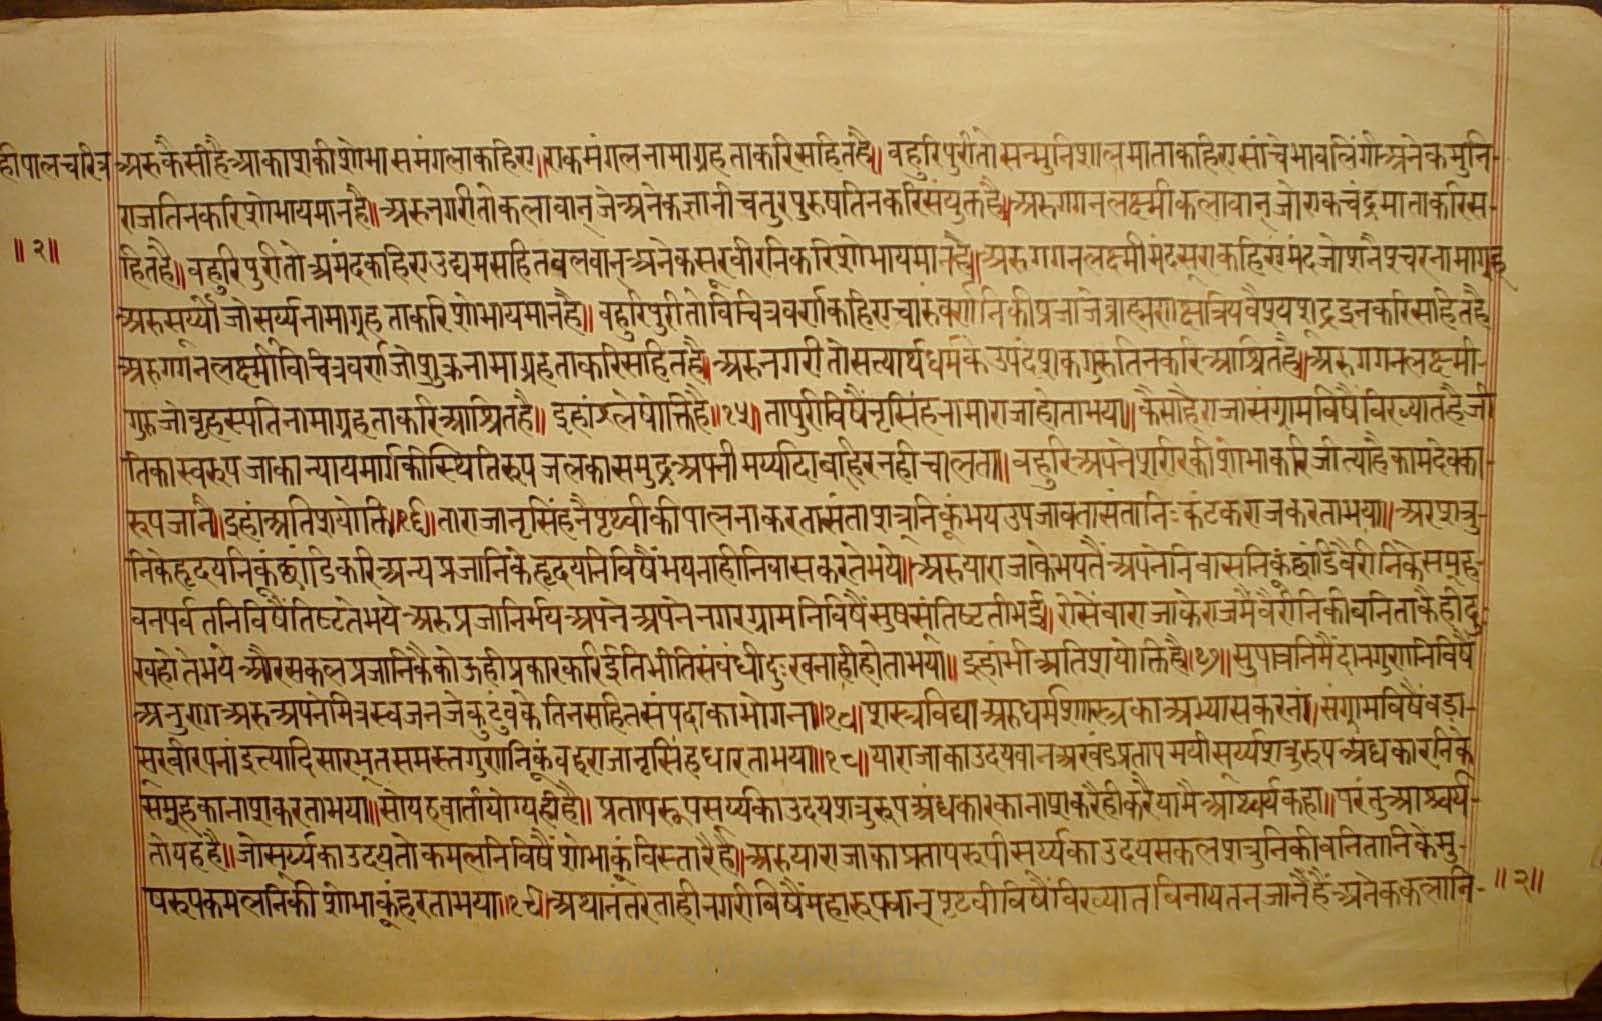 हीपालचरित्र
अरुकैसीहैआकाशकीशोभासमंगलाकहिए॥एकमंगलनामाग्रहताकरिसहितहै॥बहुरिपुरीतोसन्मुनिशालमाताकहिएसांचेभावलिंगीअनेकमुनि-
राजतिनकरिशोभायमानहै॥अरुनगरीतोकलावान्जेअनेकज्ञानीचतुरपुरुषतिनकरिसंयुक्तहै॥अरुगगनलक्ष्मीकलावान्जोएकचंद्रमाताकरिस-
॥२॥
हितहै॥बहुरिपुरीतोअमंदकहिएउद्यमसहितबलवान्अनेकसूरवीरनिकरिशोभायमानहै॥अरुगगनलक्ष्मीमंदसूराकहिएमंदजोशनैश्चरनामाग्रह
अरुसूर्य्योजोसूर्य्यनामाग्रहताकरिशोभायमानहै॥बहुरिपुरीतोविचित्रवर्णाकहिएचारुंवर्णनिकीप्रजाजेब्राह्मणक्षत्रियवैश्यशूद्रइनकरिसहितहै
अरुगगनलक्ष्मीविचित्रवर्णजोशुक्रनामाग्रहताकरिसहितहै॥अरुनगरीतोसत्यार्थधर्मकेउपदेशकगुरुतिनकरिआश्रितहै॥अरुगगनलक्ष्मी-
गुरुजोवृहस्पतिनामाग्रहताकरिआश्रितहै॥इहांश्लेषोक्तिहै॥१५॥तापुरीविषैंनृसिंहनामाराजाहोताभया॥कैसाहैराजासंग्रामविषैंविख्यातहैजी
तिकास्वरूपजाकान्यायमार्गकीस्थितिरूपजलकासमुद्रअपनीमर्य्यादाबाहिरनहीचालता॥बहुरिअपनेशरीरकीशोभाकरिजीत्याहैकामदेवका-
रूपजानै॥इहांअतिशयोति॥१६॥ताराजानृसिंहनैपृथ्वीकीपालनाकरतासंताशत्रूनिकूंभयउपजावतासंतानिःकंटकराजकरताभया॥अरशत्रु-
निकेहृदयनिकूंछांडिकरिअन्यप्रजानिकेहृदयनिविषैंभयनाहीनिवासकरतेभये॥अरुयाराजाकेभयतैंअपनेनिवासनिकूंछांडिवैरीनिकेसमूह-
वनपर्वतनिविषैंतिष्टतेभयेअरुप्रजानिर्भयअपनेअपनेनगरग्रामनिविषैंसुषसूंतिष्टतीभई॥ऐसेंवाराजाकेराजमैंवैरीनिकीवनिताकैहीदु
खहोतेभयेऔरसकलप्रजानिकैकोऊहीप्रकारकरिईतिभीतिसंबंधीदुःखनाहीहोताभया॥इहांभीअतिशयोक्तिहै॥१७॥सुपात्रनिमैंदानगुणनिविषैं
अनुरागअरुअपनेमित्रस्वजनजेकुटुंबकेतिनसहितसंपदाकाभोगना॥१८॥शस्त्रविद्याअरुधर्मशास्त्रकाअभ्यासकरनां॥संग्रामविषैंबडा-
सूरवीरपनांइत्यादिसारभूतसमस्तगुणनिकूंवहराजानृसिंहधारताभया॥१८॥याराजाकाउदयवानअखंडप्रतापमयीसूर्य्यशत्रुरूपअंधकारनिके
समूहकानाशकरताभया॥सोयहवार्तायोग्यहीहै॥प्रतापरूपसूर्य्यकाउदयशत्रुरूपअंधकारकानाशकरैहीकरैयामैआश्चर्यकहा॥परंतुआश्चर्य-
तोयहहै॥जोसूर्य्यकाउदयतोकमलनिविषैंशोभाकूंविस्तारैहै॥अरुयाराजाकाप्रतापरूपीसूर्य्यकाउदयसकलशत्रुनिकीवनितानिकेमु-
षरूपकमलनिकीशोभाकूंहरताभया॥१९॥अथानंतरताहीनगरीविषैंमहारूपवान्पृथ्वीविषैंविख्यातविनायतनजानैंहैंअनेककलानि-
॥२॥